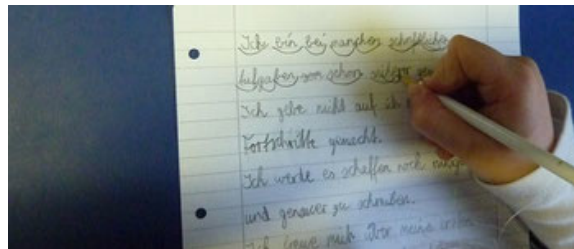 Ich bin bei manchen schriftlichen
Aufgaben schon
Ich gebe nicht auf ich
Fortschritte gemacht.
Ich werde es schaffen noch
und genauer zu schreiben.
Ich freue mich